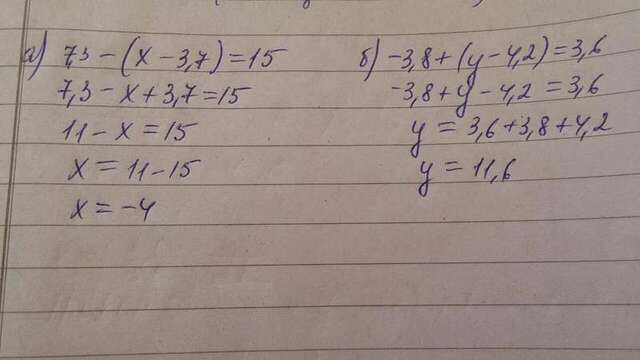 а) 73 - (x - 3,7) = 15
7,3 - x + 3,7 = 15
11 - x = 15
x = 11 - 15
x = -4
б) -3,8 + (y - 4,2) = 3,6
-3,8 + y - 4,2 = 3,6
y = 3,6 + 3,8 + 4,2
y = 11,6